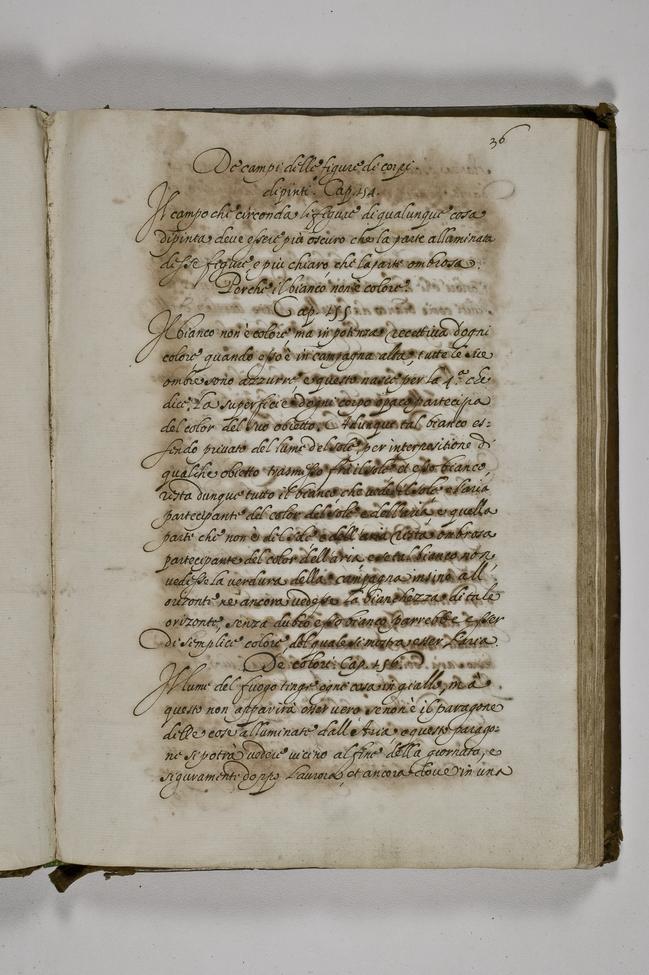 36
De campi delle figure de corpi
dipinti. Cap. 154.
Il campo che circonda le figure di qualunque cosa
dipinta deve essere più oscuro che la parte alluminata
di esse figure e più chiaro che la parte ombrosa.
Perche il bianco non è colore.
Cap. 155
Il bianco non è colore, ma in potenza recettiva d'ogni
colore quando esso è in campagna alta, tutte le sue
ombre sono azzurre, e questo nasce per la 4.a che
dice, La superficie d'ogni corpo opaco partecipa
del color del suo obietto. Adunque tal bianco es-
sendo privato del lume del sole per interpositione di
qualche obietto trasmesso fra il sole et esso bianco,
resta dunque tutto il bianco che vede il sole e l'aria
partecipante del color del sole e dell'aria e quella
parte che non è del sole e dell'aria resta ombrosa
partecipante del color dell'aria e se tal bianco non
vedesse la verdura della campagna insino all'
orizonte ne ancora vedesse la bianchezza di tale
orizonte, senza dubio esso bianco parrebbe esser
Di semplice colore del quale si mostra esser l'aria.
De colori. Cap. 156.
Il lume del fuogo tinge ogni cosa in giallo, ma
questo non apparirà esser vero se non è il paragone
delle cose alluminate dall'Aria e questo parago-
ne si potrà vedere vicino al fine della giornata, e
siguramente doppo l'aurora, et ancora dove in una